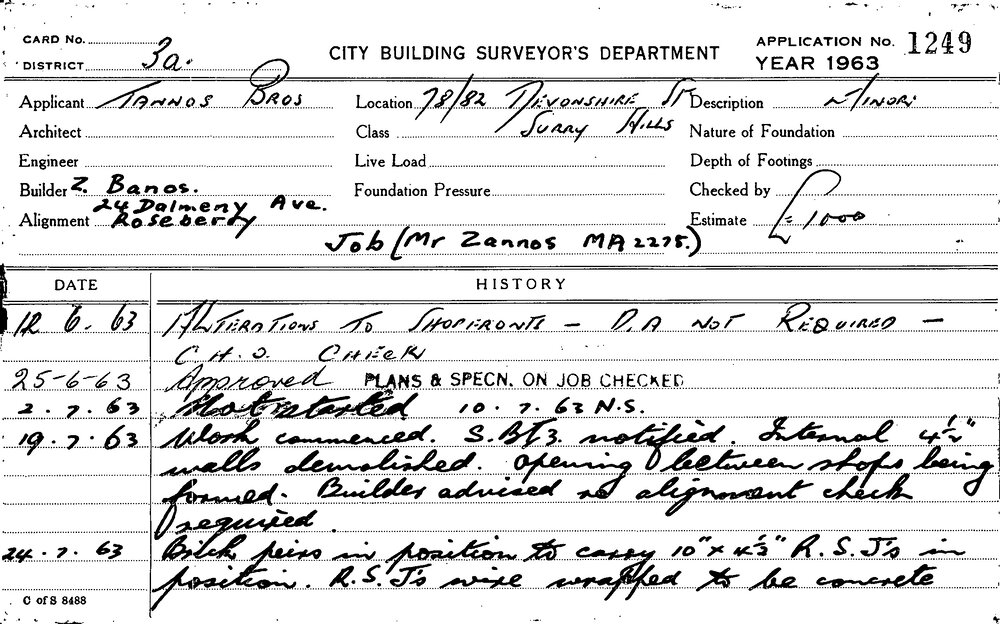 CARD No.
DISTRICT 3a.
CITY BUILDING SURVEYOR'S DEPARTMENT
APPLICATION No. 1249
YEAR 1963
Applicant Zannos Bros
Location 78/82 Devonshire St
Description Minor
Architect
Class Surry Hills
Nature of Foundation
Engineer
Live Load
Depth of Footings
Builder Z. Banos.
Foundation Pressure
Checked by
24 Dalmeny Ave.
Alignment Roseberry
Estimate £1000
Job (Mr Zannos MA2275.)
DATE
HISTORY
12 6. 63 Alterations to Shopfronts - D.A not Required -
C.H.O. Check
25-6-63 Approved PLANS & SPECN. ON JOB CHECKED
2. 7. 63 Not started 10. 7. 63 N.S.
19. 7. 63 Work commenced. notified. Internal 4½"
walls demolished. opening between shops being
formed. Builder advised no alignment check
required.
24. 7. 63 Brick peirs in position to carry 10" x 4½" R.S.J's in
position. R.S.J's wire wrapped to be concrete
C of S 8488